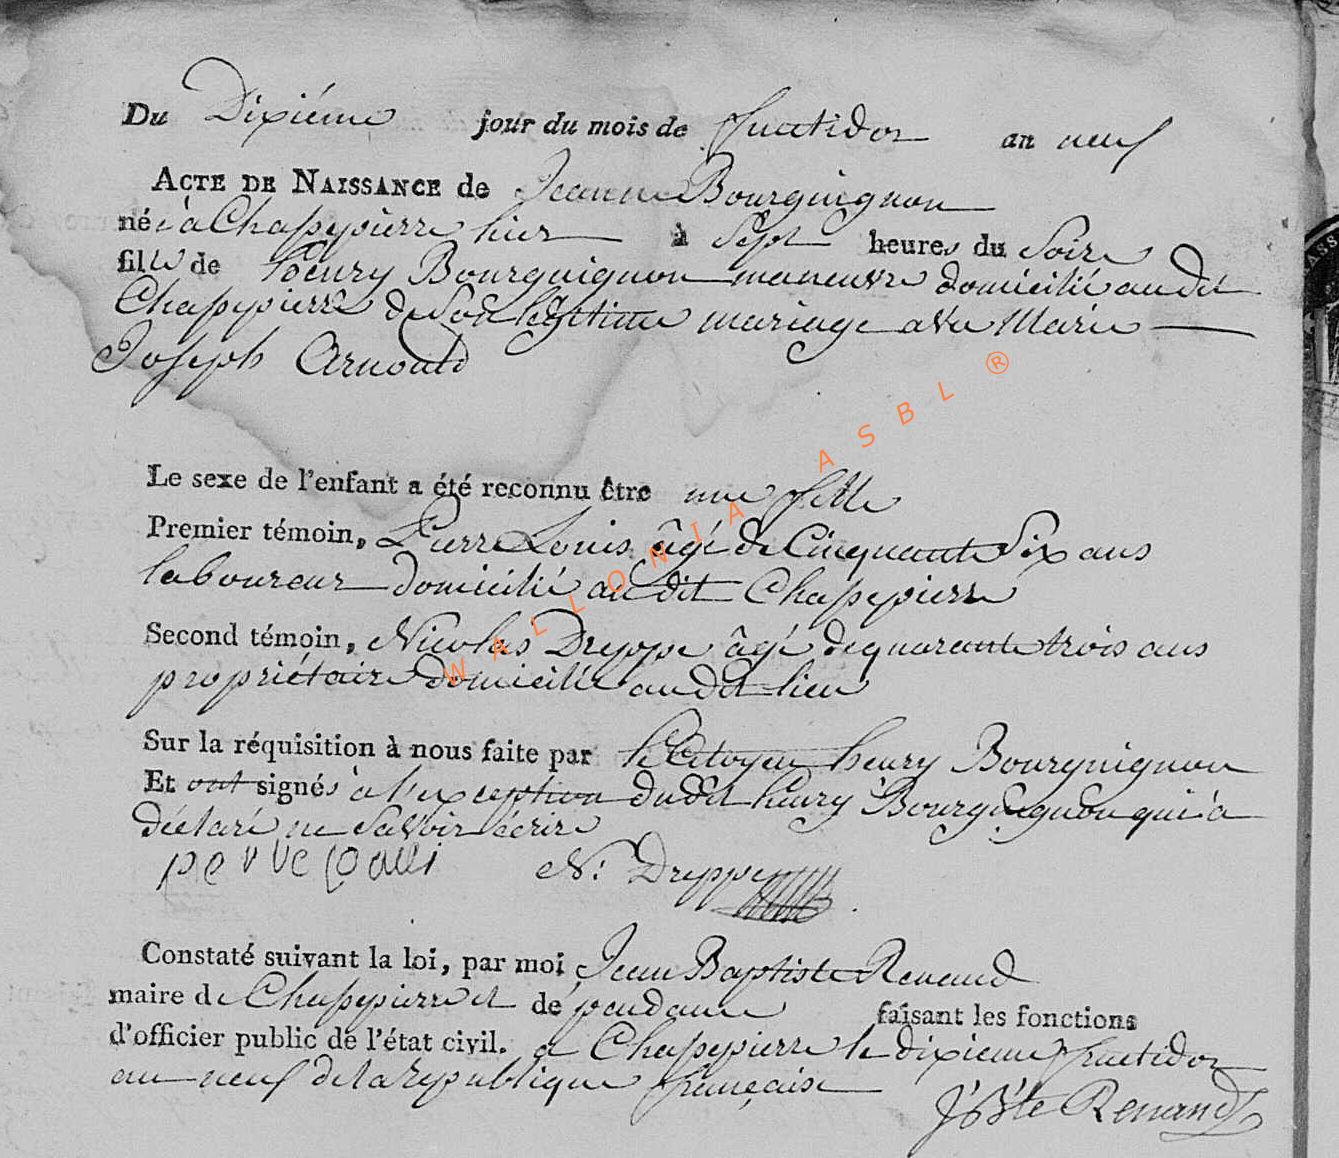 Du Dixiéme jour du mois de fructidor an neuf
ACTE DE NAISSANCE de Jeanne Bourguignon
née à Chassepierre hier à Sept heures du Soire
fille de henry Bourguignon maneuvre domicilié au dit
Chassepierre de Son légitime mariage avec Marie
Joseph Arnould
Le sexe de l'enfant a été reconnu être une fille
Premier témoin, Pierre Louis âgé de Cinquante Six ans
laboureur domicilié au dit Chassepierre
Second témoin, Nicolas Dreppe âgé de quarante trois ans
propriétaire domicilié au dit lieu
Sur la réquisition à nous faite par le Citoyen henry Bourguignon
Et ont signés à l'exception du dit henry Bourguignon qui a
déclaré ne Savoir écrire
N: Dreppe
Constaté suivant la loi, par moi Jean Baptiste Renaud
maire de Chassepierre et de faisant les fonctions
d'officier public de l'état civil. a Chassepierre le dixieme fructidor
an neuf de la republique française
JBte Renaud
WALLONIA ASBL ®